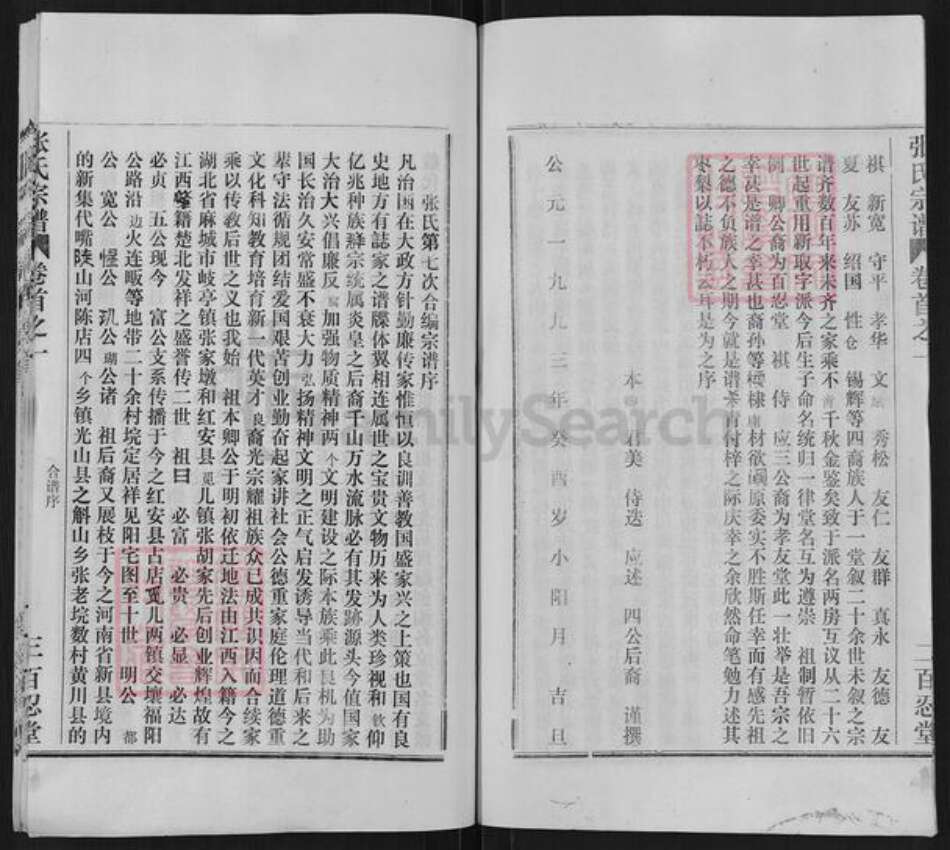 张氏宗谱 卷首之一
二百忍堂
祺 新宽 守平 孝华 文 秀松 友仁 友群 真永 友德 友
夏 友苏 绍国 性仓 锡辉等四裔族人于一堂叙二十余世未叙之宗
谱齐数百年来未齐之家乘不 千秋金鉴矣致于派名两房互议从二十六
世起重用新取字派今后生子命名统归一律堂名互为遵崇 祖制暂依旧
例 卿公裔为百忍堂 祺 侍 应三公裔为孝友堂此一壮举是吾宗之
幸甚是谱之幸甚也裔孙等 棣 材欲阐原委实不胜斯任幸而有感先祖
之德不负族人之期今就是谱 付梓之际庆幸之余欣然命笔勉力述其
枣梨以誌不朽云耳是为之序
本 君美 侍选 应述 四公后裔 谨撰
公元一九九三年癸酉岁小阳月吉旦
张氏第七次合编宗谱序
凡治国在大政方针勤廉传家惟恒以良训善教国盛家兴之上策也国有良
史地方有誌家之谱牒体翼相连属世之宝贵文物历来为人类珍视和钦仰
亿兆种族繇宗统属炎皇之后裔千山万水流脉必有其发跡源头今值国家
大治大兴倡廉反腐加强物质精神两个文明建设之际本族乘此良机为助
国长治久安常盛不衰大力弘扬精神文明之正气启发诱导当代和后来之
辈守法循规团结爱国艰苦创业勤奋起家讲社会公德重家庭伦理道德重
文化科知教育培育新一代英才良裔光宗耀祖族众已成共识因而合续家
乘以传教后世之义也我始 祖本卿公于明初依迁地法由江西入籍今之
湖北省麻城市岐亭镇张家墩和红安县觅儿镇张胡家先后创业辉煌故有
江西 籍楚北发祥之盛誉传二世 祖曰 必富 必贵 必显 必达
必贞 五公现今 富公支系传播于今之红安县占店觅儿两镇交壤福阳
公路沿边火连畈等地带二十余村垸定居祥见阳宅图至十世 明公 都
公 宽公 惺公 玑公瑚公诸 祖后裔又展枝于今之河南省新县境内
的新集代嘴陡山河陈店四个乡镇光山县之斛山乡张老垸数村黄川县的
合谱序
张氏宗谱 卷首之一
三百忍堂
FamilySearch